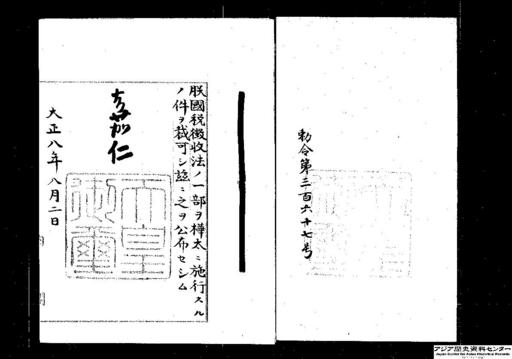 勅令第三百六十七号
朕國税徴收法ノ一部ヲ樺太ニ施行スル
ノ件ヲ裁可シ茲ニ之ヲ公布セシム
嘉仁
天皇
御璽
大正八年八月二日
アジア歴史資料センター
Japan Center for Asian Historical Records